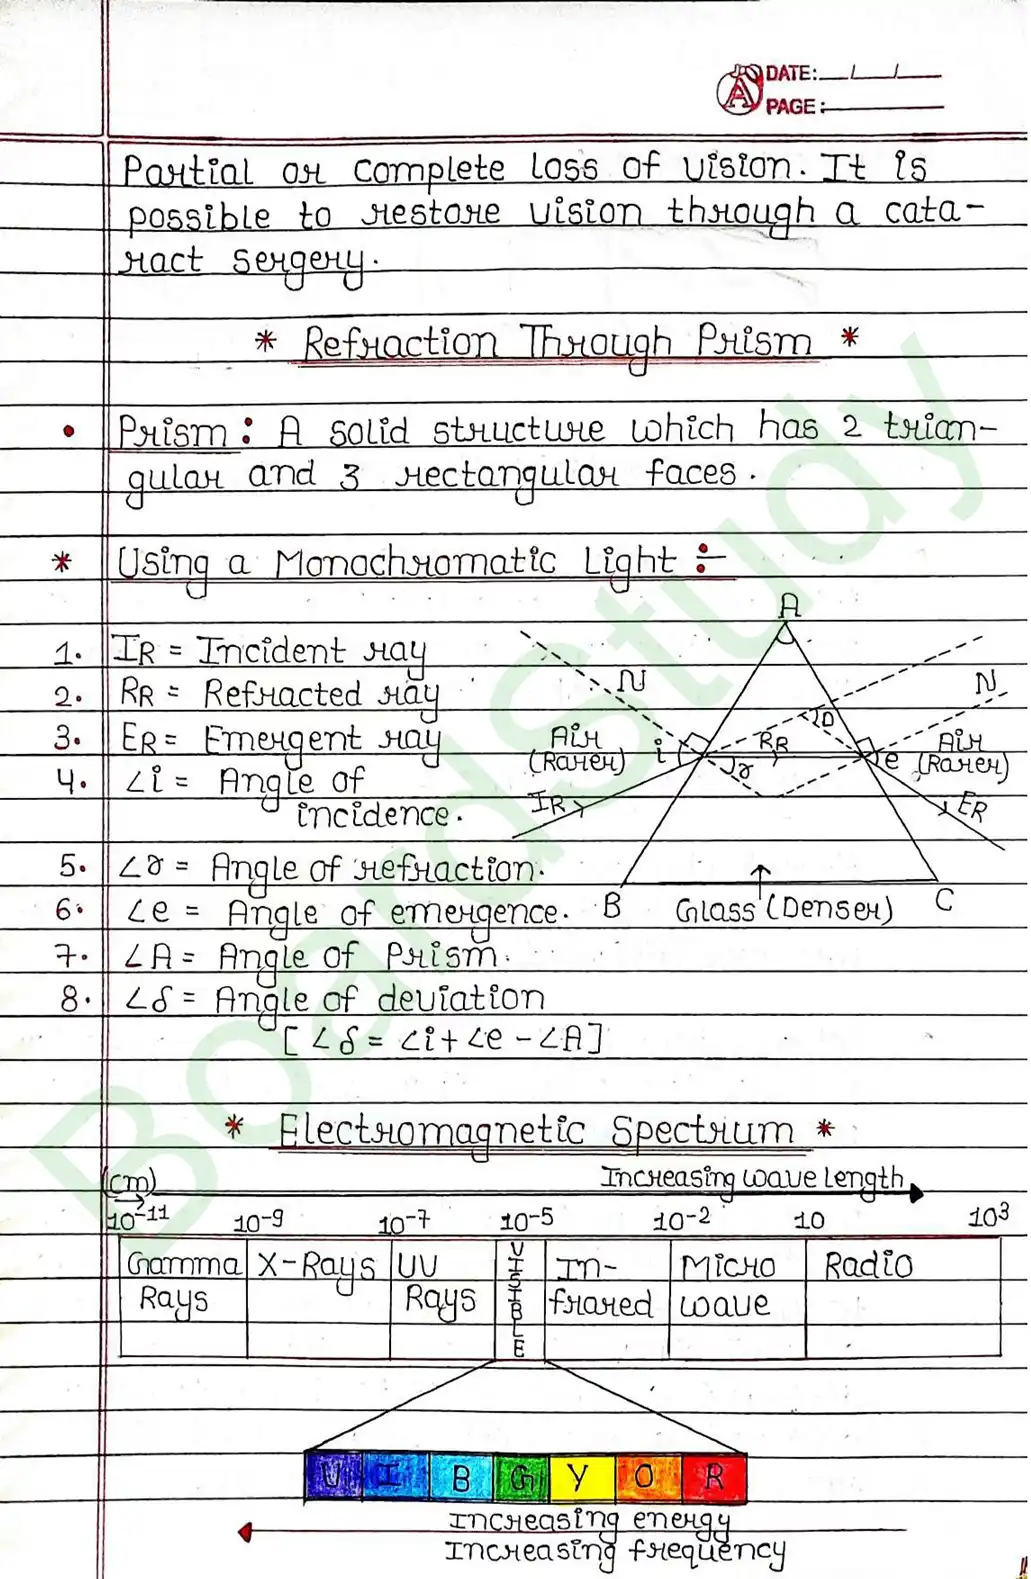 DATE: / /
PAGE:
Partial or complete loss of vision. It is
possible to restore vision through a cata-
ract sergery.
* Refraction Through Prism *
• Prism: A solid structure which has 2 trian-
gular and 3 rectangular faces.
* Using a Monochromatic Light :-
1. IR = Incident ray
2. RR = Refracted ray
3. ER = Emergent ray
4. ∠i = Angle of
incidence.
5. ∠r = Angle of refraction.
6. ∠e = Angle of emergence.
7. ∠A = Angle of Prism.
8. ∠δ = Angle of deviation
[∠δ = ∠i + ∠e - ∠A]
A
N
N
D
Air
(Rarer)
i
RR
r
e
Air
(Rarer)
IR
ER
B
Glass (Denser)
C
* Electromagnetic Spectrum *
(cm)
Increasing wave length
10-11 10-9 10-7 10-5 10-2 10 103
Gamma Rays
X-Rays
UV Rays
VISIBLE
In-
frared
Micro
wave
Radio
V I B G Y O R
Increasing energy
Increasing frequency
BoardStudy